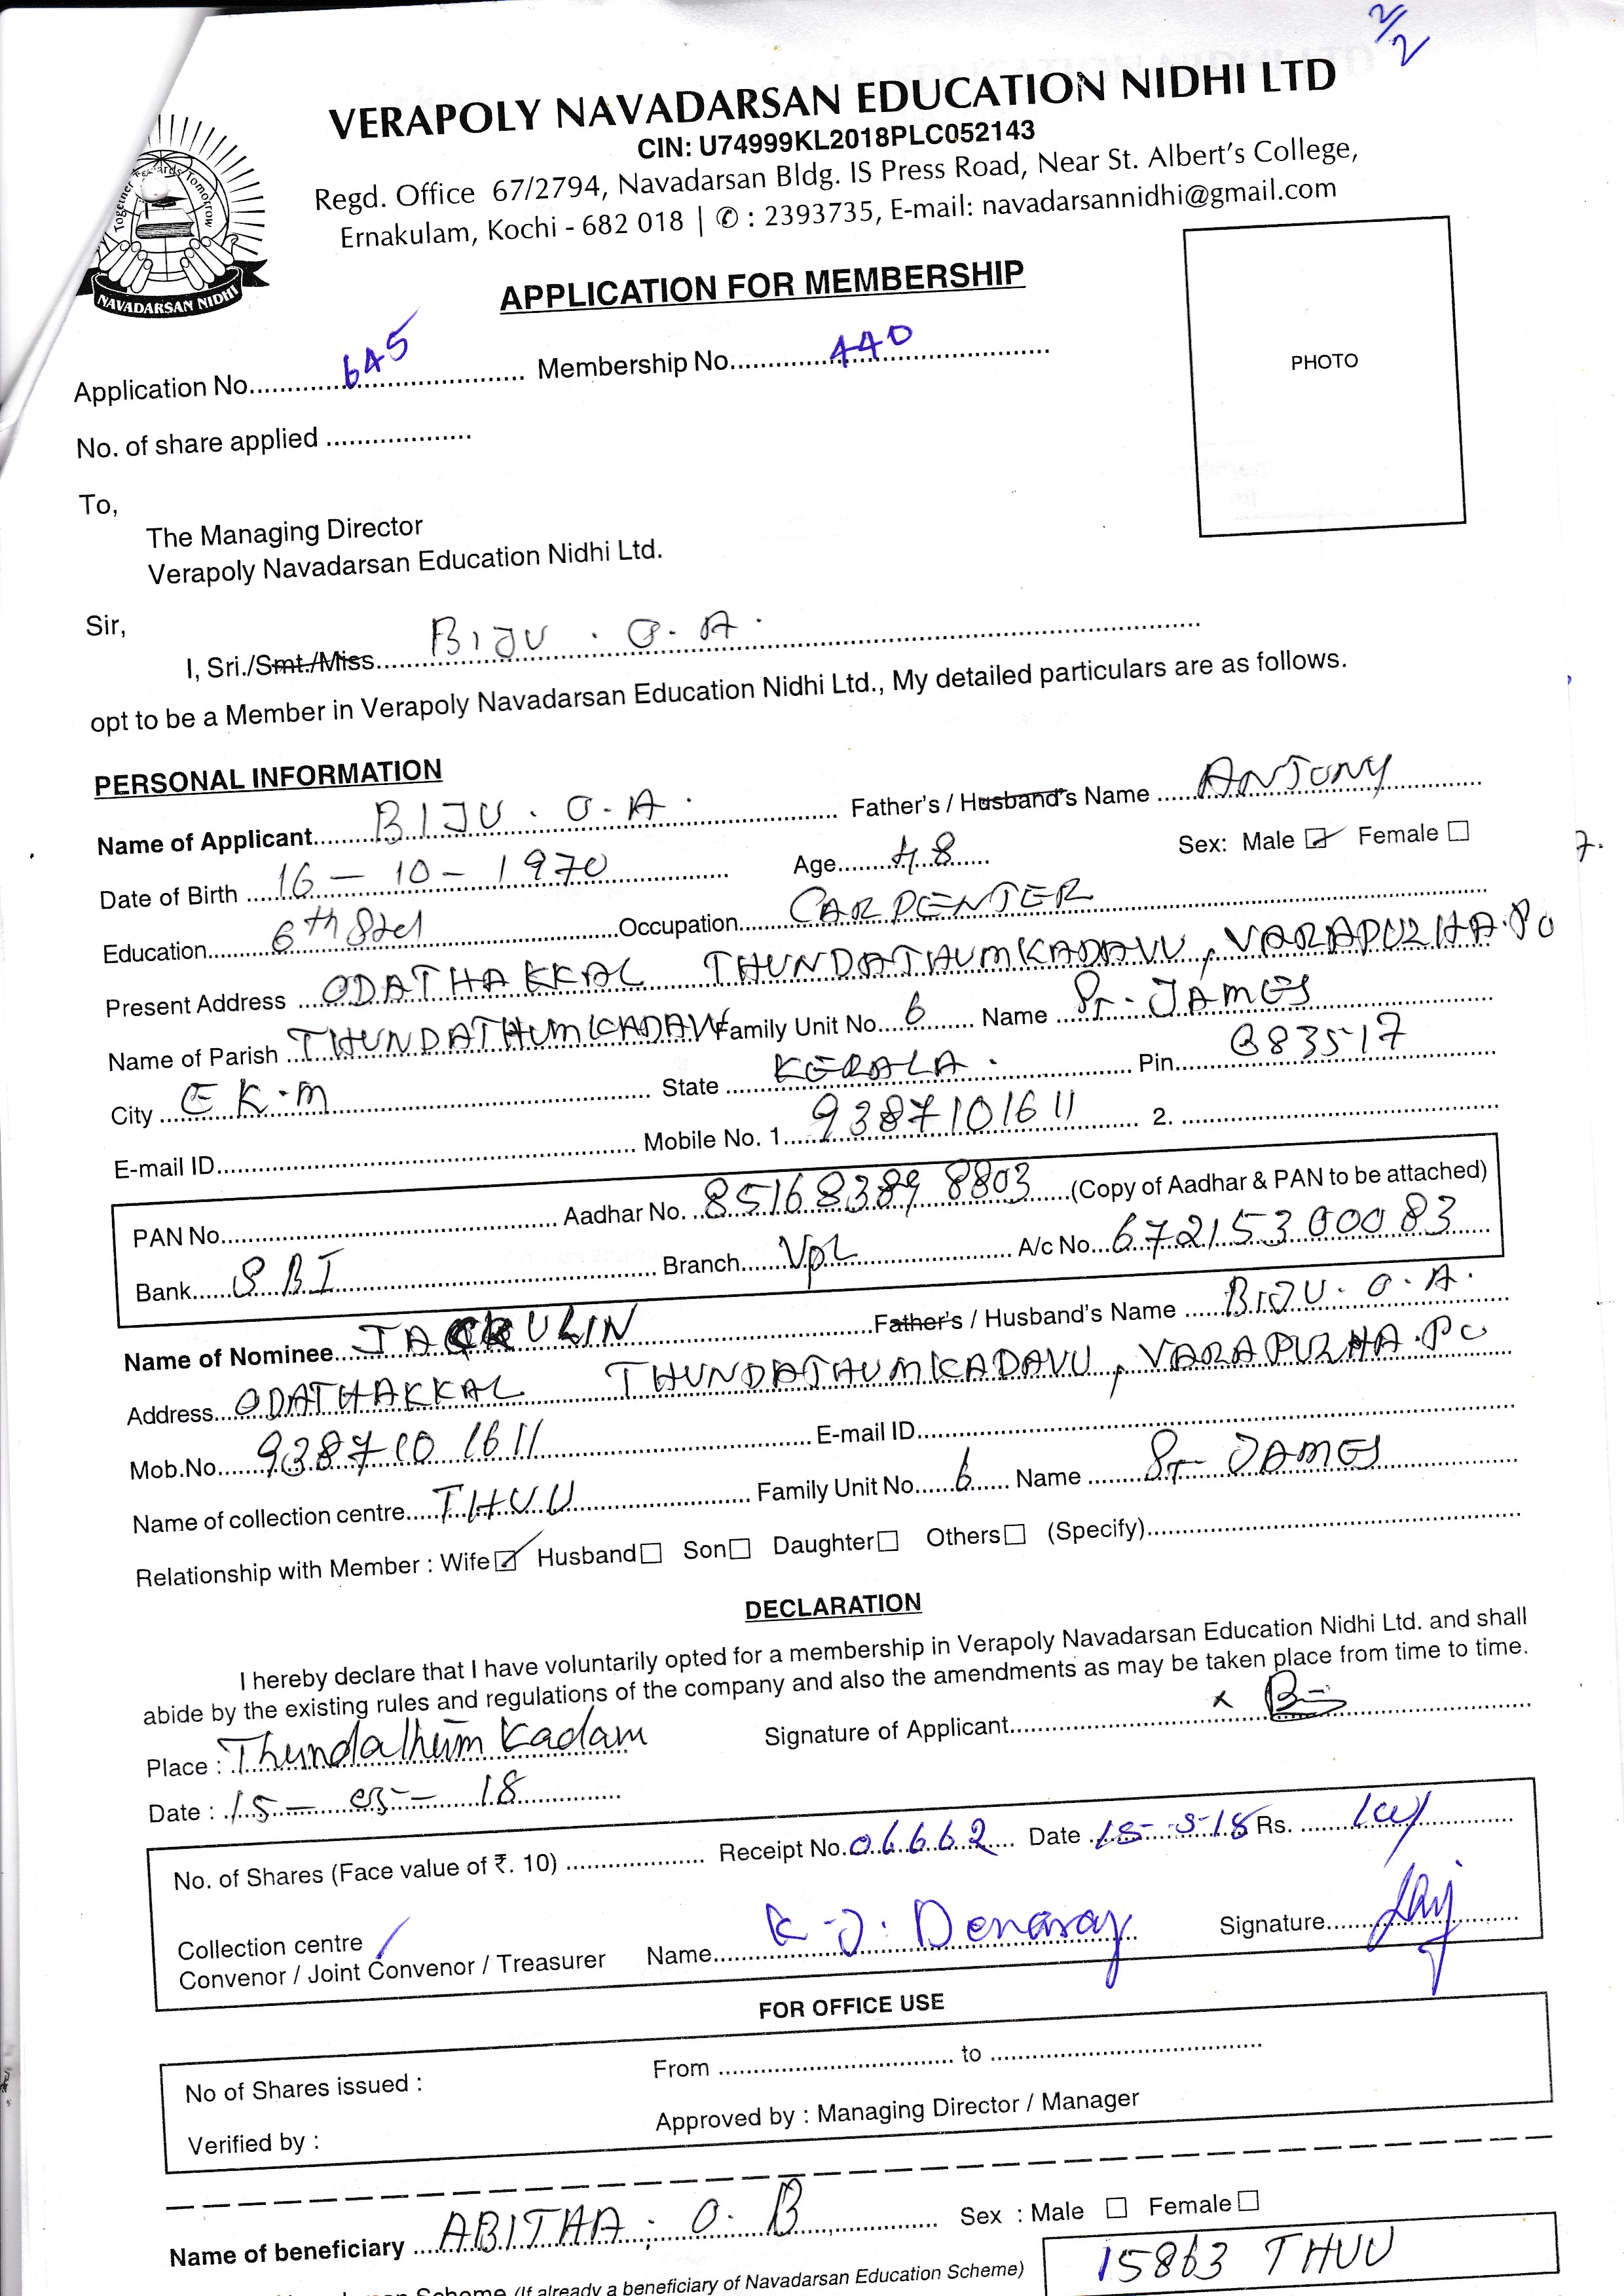 2/2
VERAPOLY NAVADARSAN EDUCATION NIDHI LTD
CIN: U74999KL2018PLC052143
Regd. Office 67/2794, Navadarsan Bldg. IS Press Road, Near St. Albert's College,
Ernakulam, Kochi - 682 018 | ✆ : 2393735, E-mail: navadarsannidhi@gmail.com
Together Towards Tomorrow
NAVADARSAN NIDHI
APPLICATION FOR MEMBERSHIP
PHOTO
Application No. 645 Membership No. 440
No. of share applied
To,
The Managing Director
Verapoly Navadarsan Education Nidhi Ltd.
Sir,
I, Sri./Smt./Miss. BIJU . O. A.
opt to be a Member in Verapoly Navadarsan Education Nidhi Ltd., My detailed particulars are as follows.
PERSONAL INFORMATION
Name of Applicant BIJU . O. A. Father's / Husband's Name ANTONY
Date of Birth 16 - 10 - 1970 Age 48 Sex: Male ☑ Female ☐
Education 6th Std Occupation CARPENTER
Present Address ODATHAKKAL THUNDATHUMKADAVU, VARAPUZHA.PO
Name of Parish THUNDATHUMKADAVU Family Unit No. 6 Name ST. JAMES
City EK.M State KERALA. Pin 683517
E-mail ID Mobile No. 1. 9387101611 2.
PAN No. Aadhar No. 8516 8389 8803 (Copy of Aadhar & PAN to be attached)
Bank SBI Branch VPL A/c No. 67215300083
Name of Nominee JACKULIN Father's / Husband's Name BIJU. O. A.
Address ODATHAKKAL THUNDATHUMKADAVU, VARAPUZHA.PO
Mob.No. 9387101611 E-mail ID
Name of collection centre THUU Family Unit No. 6 Name ST JAMES
Relationship with Member : Wife ☑ Husband ☐ Son ☐ Daughter ☐ Others ☐ (Specify)
DECLARATION
I hereby declare that I have voluntarily opted for a membership in Verapoly Navadarsan Education Nidhi Ltd. and shall
abide by the existing rules and regulations of the company and also the amendments as may be taken place from time to time.
Place : Thundathum Kadam Signature of Applicant x
Date : 15 - 05 - 18
No. of Shares (Face value of ₹. 10) Receipt No. 06662 Date 15-5-18 Rs.
Collection centre
Convenor / Joint Convenor / Treasurer Name K.J. Signature
FOR OFFICE USE
No of Shares issued : From to
Verified by : Approved by : Managing Director / Manager
Name of beneficiary ABITHA. O. B Sex : Male ☐ Female ☐
(If already a beneficiary of Navadarsan Education Scheme) 15863 THUU